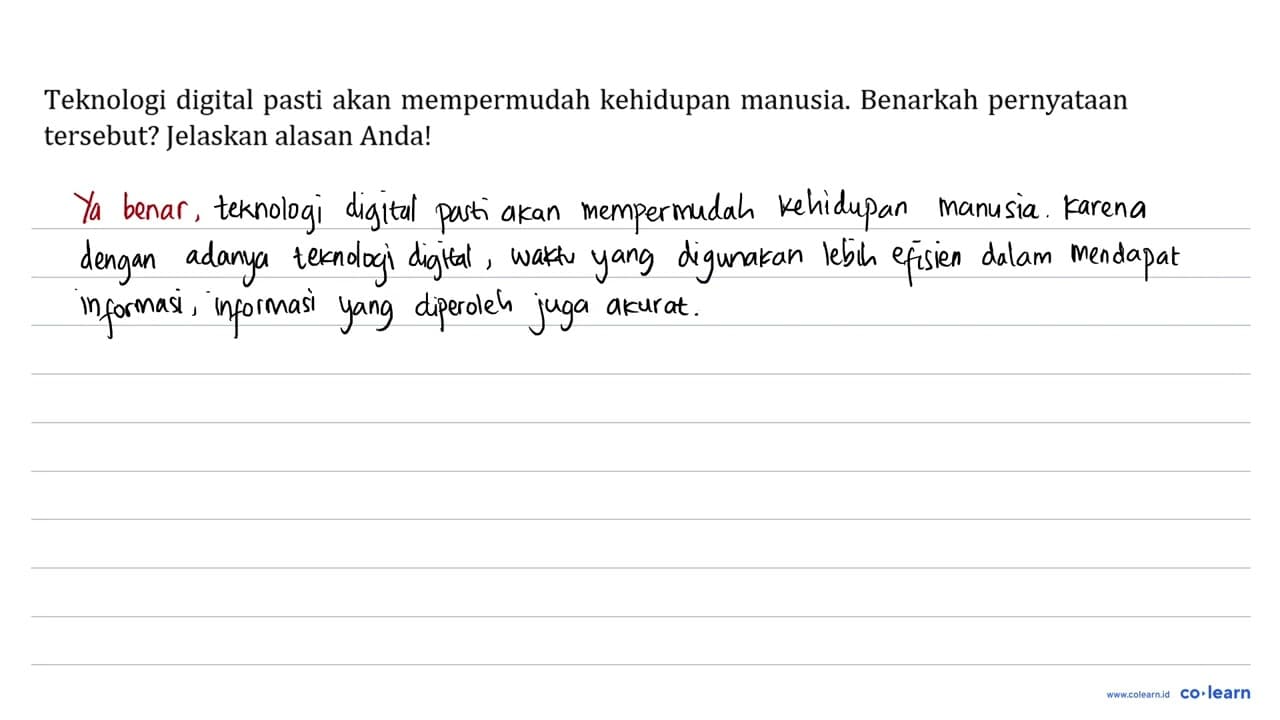 Teknologi digital pasti akan mempermudah kehidupan manusia. Benarkah pernyataan
tersebut? Jelaskan alasan Anda!
Ya benar, teknologi digital pasti akan mempermudah kehidupan manusia. Karena
dengan adanya teknologi digital, waktu yang digunakan lebih efisien dalam mendapat
informasi, informasi yang diperoleh juga akurat.
www.colearn.id co·learn